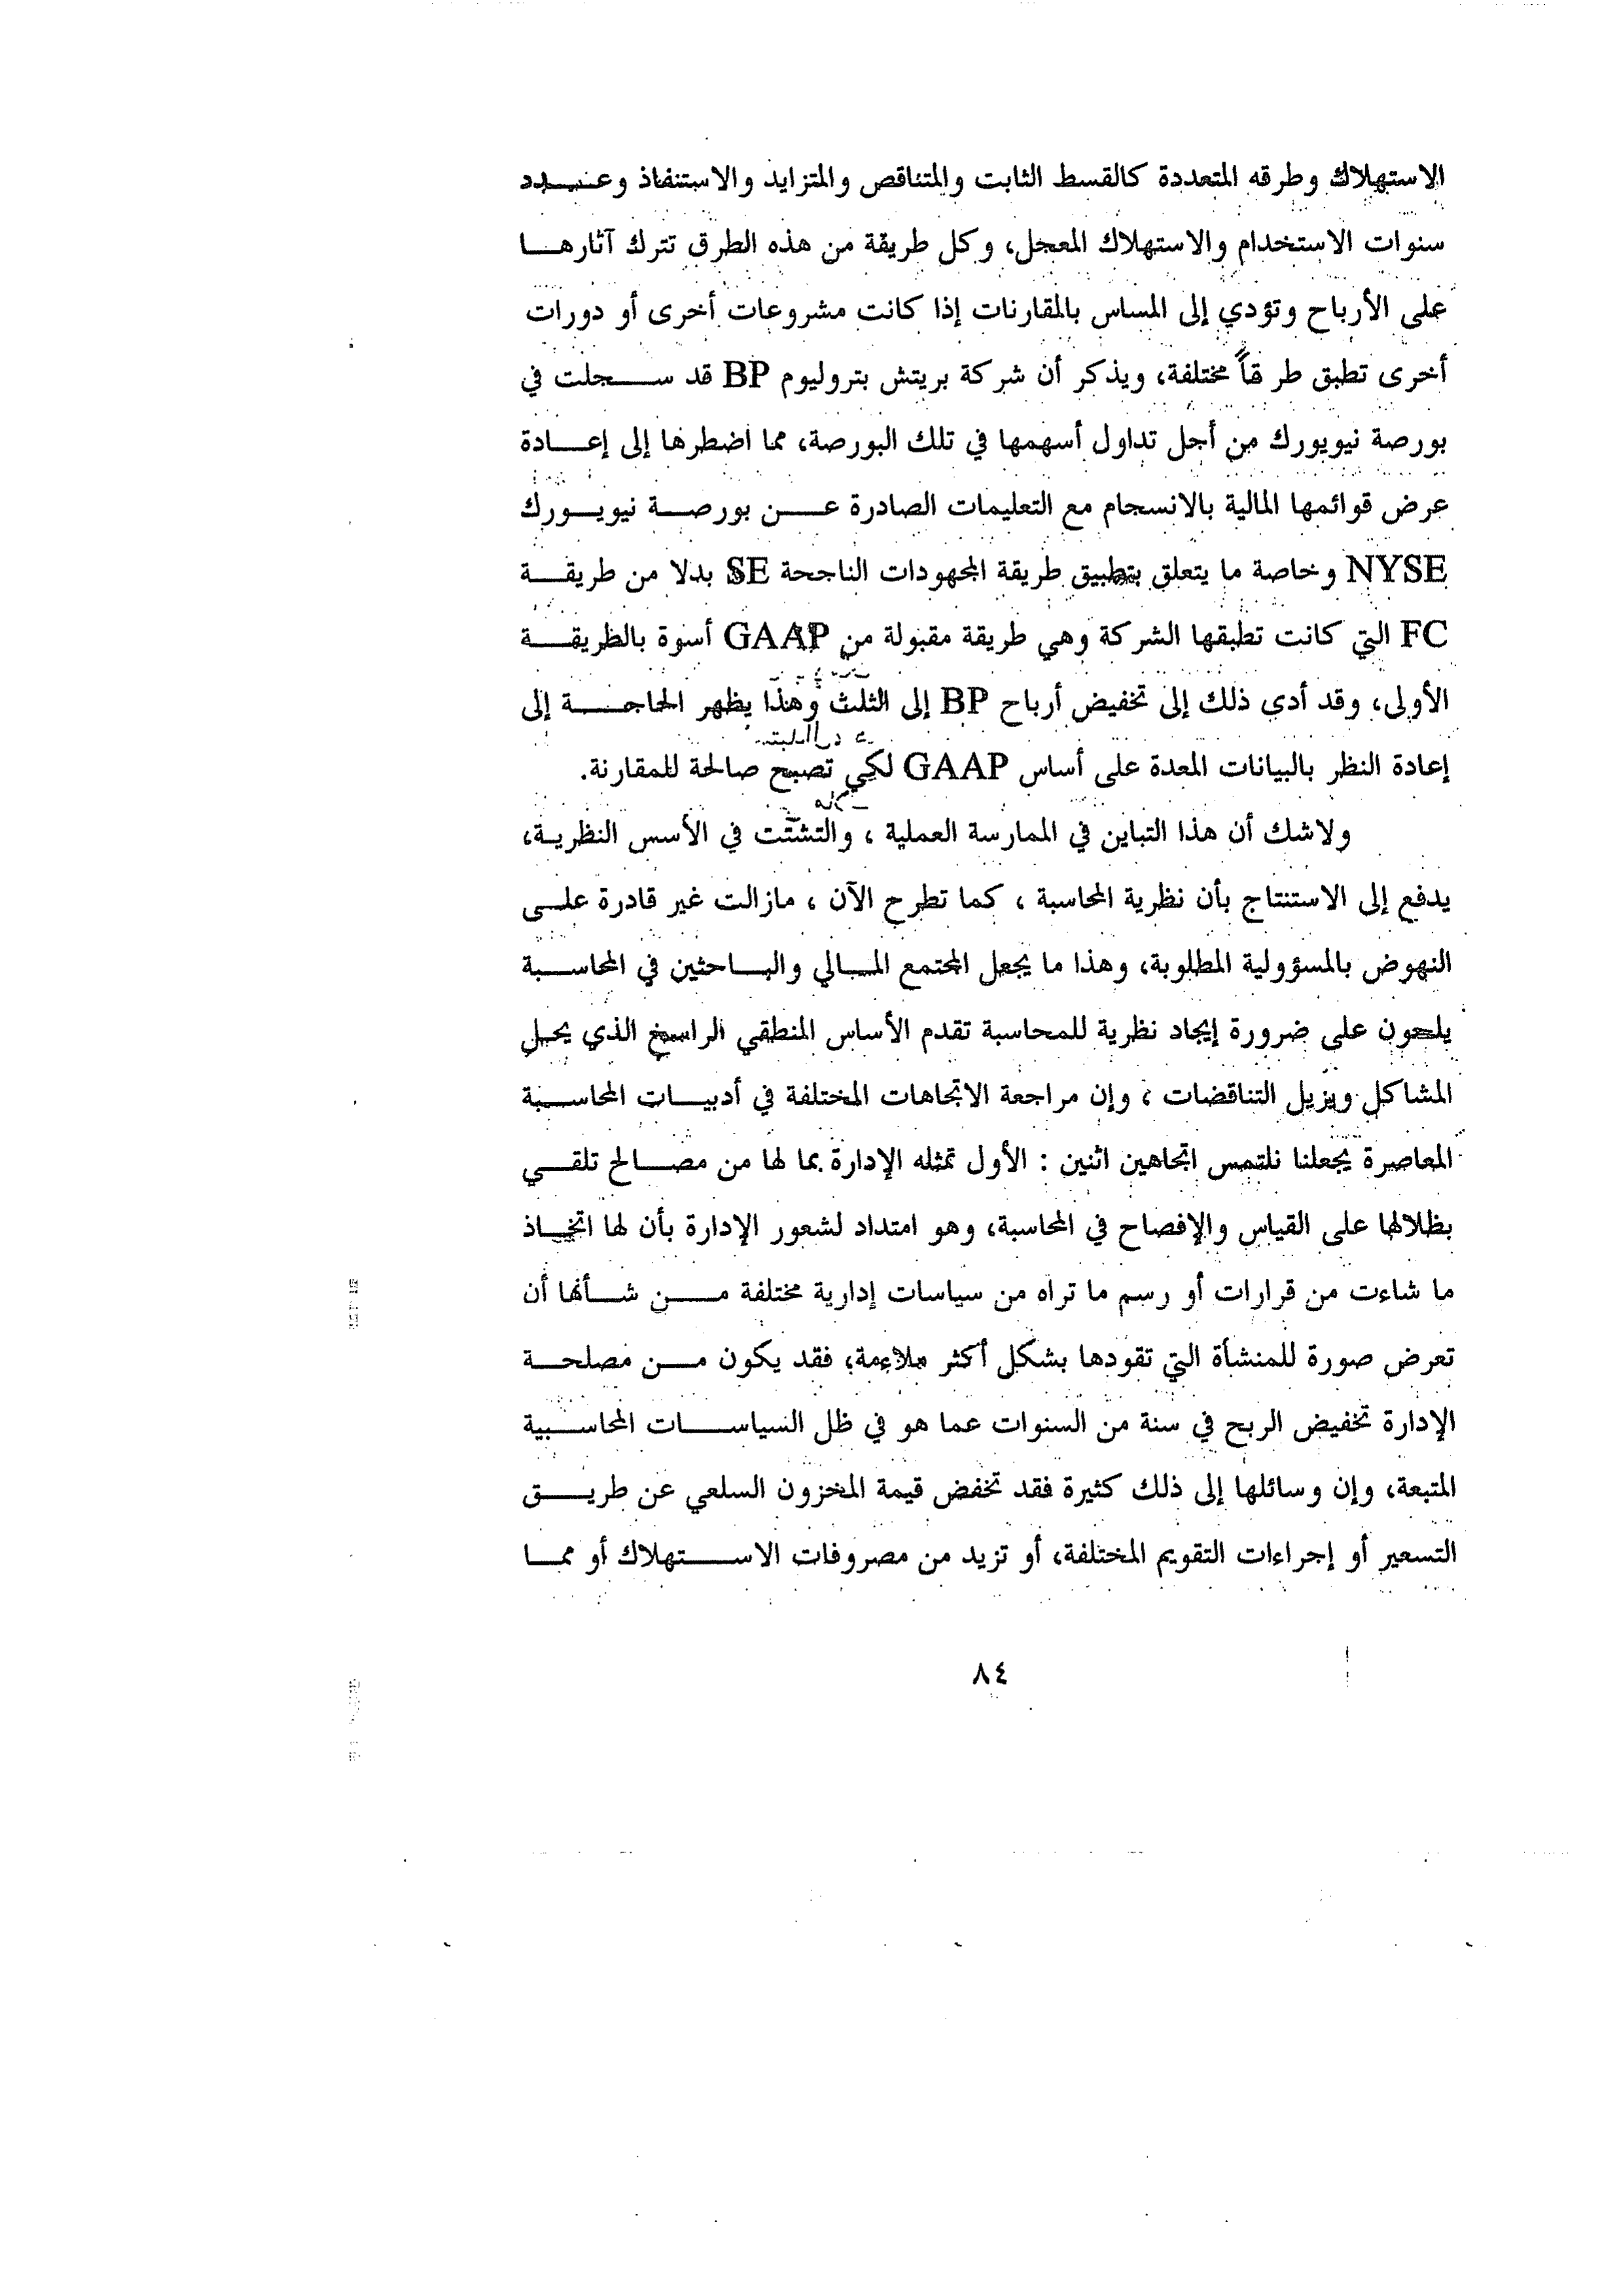 الاستهلاك وطرقه المتعددة كالقسط الثابت والمتناقص والمتزايد والاستنفاذ وعدد
سنوات الاستخدام والاستهلاك المعجل، وكل طريقة من هذه الطرق تترك آثارها
على الأرباح وتؤدي إلى المساس بالمقارنات إذا كانت مشروعات أخرى أو دورات
أخرى تطبق طرقاً مختلفة، ويذكر أن شركة بريتش بتروليوم BP قد سجلت في
بورصة نيويورك من أجل تداول أسهمها في تلك البورصة، مما اضطرها إلى إعادة
عرض قوائمها المالية بالانسجام مع التعليمات الصادرة عن بورصة نيويورك
NYSE وخاصة ما يتعلق بتطبيق طريقة المجهودات الناجحة SE بدلا من طريقة
FC التي كانت تطبقها الشركة وهي طريقة مقبولة من GAAP أسوة بالطريقة
الأولى، وقد أدى ذلك إلى تخفيض أرباح BP إلى الثلث وهذا يظهر الحاجة إلى
إعادة النظر بالبيانات المعدة على أساس GAAP لكي تصبح صالحة للمقارنة.
ولاشك أن هذا التباين في الممارسة العملية ، والتشتّت في الأسس النظرية،
يدفع إلى الاستنتاج بأن نظرية المحاسبة ، كما تطرح الآن ، مازالت غير قادرة على
النهوض بالمسؤولية المطلوبة، وهذا ما يجعل المجتمع المالي والباحثين في المحاسبة
يلحون على ضرورة إيجاد نظرية للمحاسبة تقدم الأساس المنطقي الراسخ الذي يحل
المشاكل ويزيل التناقضات ، وإن مراجعة الاتجاهات المختلفة في أدبيات المحاسبة
المعاصرة يجعلنا نلتمس اتجاهين اثنين : الأول تمثله الإدارة بما لها من مصالح تلقي
بظلالها على القياس والإفصاح في المحاسبة، وهو امتداد لشعور الإدارة بأن لها اتخاذ
ما شاءت من قرارات أو رسم ما تراه من سياسات إدارية مختلفة من شأنها أن
تعرض صورة للمنشأة التي تقودها بشكل أكثر ملاءمة، فقد يكون من مصلحة
الإدارة تخفيض الربح في سنة من السنوات عما هو في ظل السياسات المحاسبية
المتبعة، وإن وسائلها إلى ذلك كثيرة فقد تخفض قيمة المخزون السلعي عن طريق
التسعير أو إجراءات التقويم المختلفة، أو تزيد من مصروفات الاستهلاك أو مما
٨٤